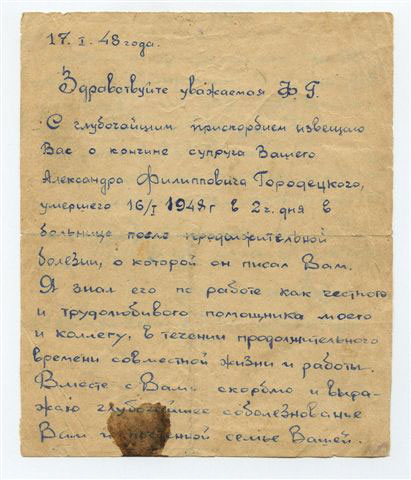 17. I. 48 года.
Здравствуйте уважаемая Ф. Г.
С глубочайшим прискорбием извещаю
Вас о кончине супруга Вашего
Александра Филипповича Городецкого,
умершего 16/I 1948г в 2 ч. дня в
больнице после продолжительной
болезни, о которой он писал Вам.
Я знал его по работе как честного
и трудолюбивого помощника моего
и коллегу, в течении продолжительного
времени совместной жизни и работы.
Вместе с Вами скорблю и выра-
жаю глубочайшее соболезнование
Вам и семье Вашей.